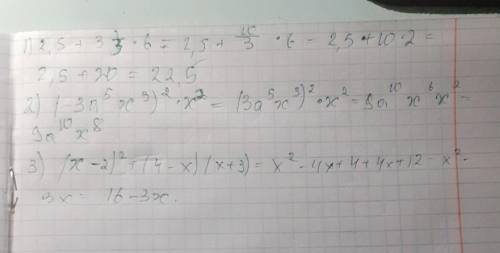 1) 2,5 + 3 1/3 · 6 = 2,5 + 10/3 · 6 = 2,5 + 10 · 2 =
2,5 + 20 = 22,5
2) (-3a⁵x³)² · x² = (3a⁵x³)² · x² = 9a¹⁰x⁶x² =
9a¹⁰x⁸
3) (x-2)² + (4-x)(x+3) = x² - 4x + 4 + 4x + 12 - x² -
3x = 16 - 3x.